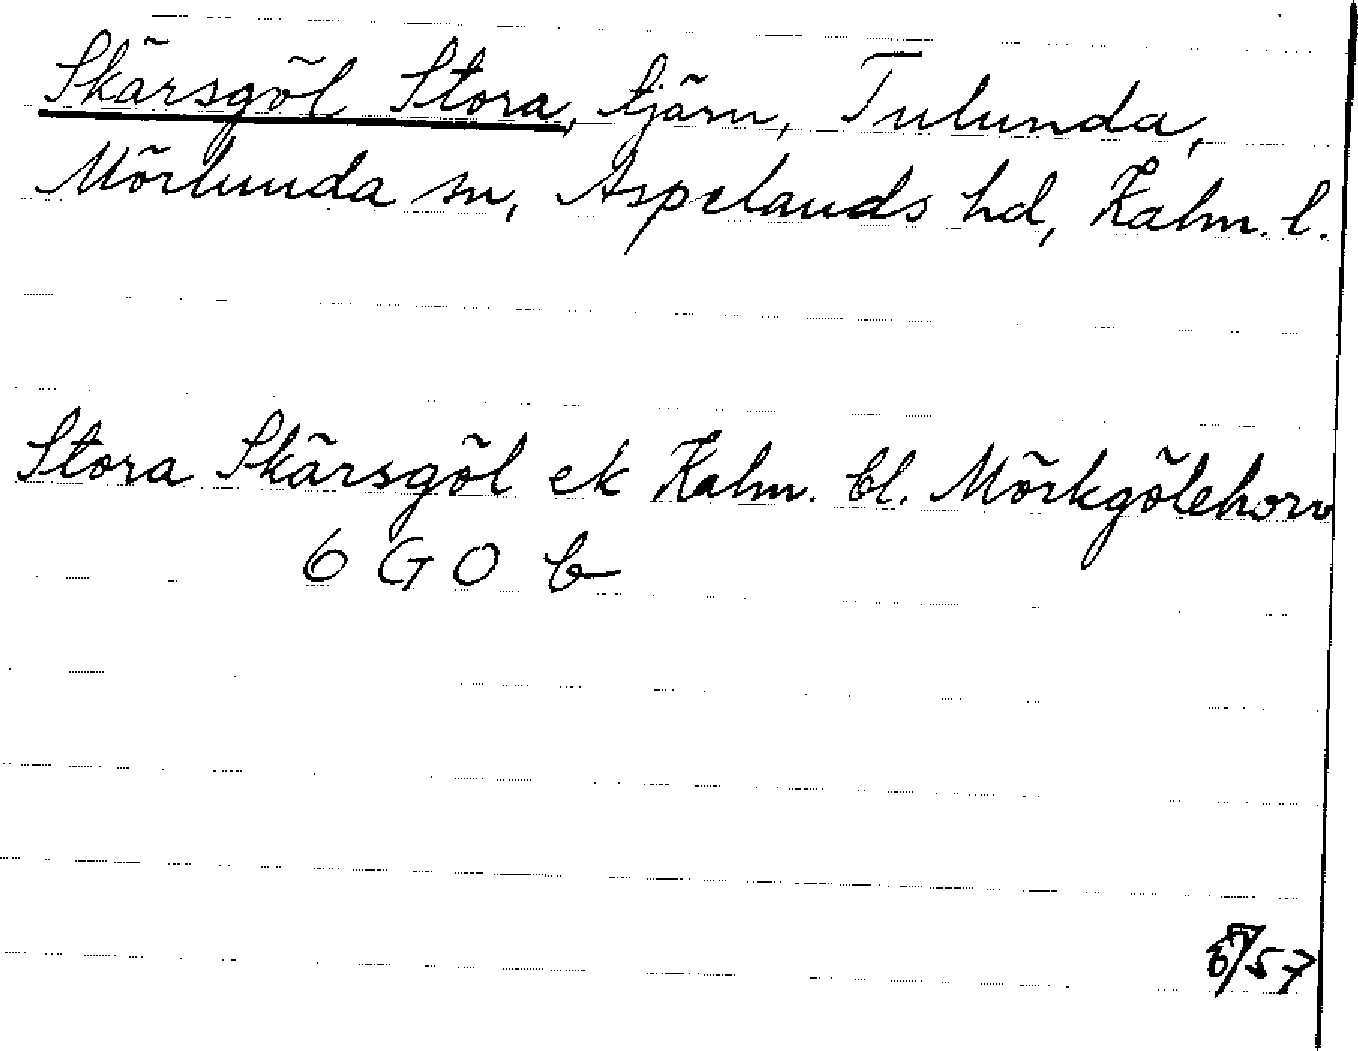 Skärsgöl Stora, tjärn, Tulunda,
Mörlunda sn, Aspelands hd, Kalm. l.
Stora Skärsgöl ek Kalm. bl. Mörkgölehorv
6 G O b
/57